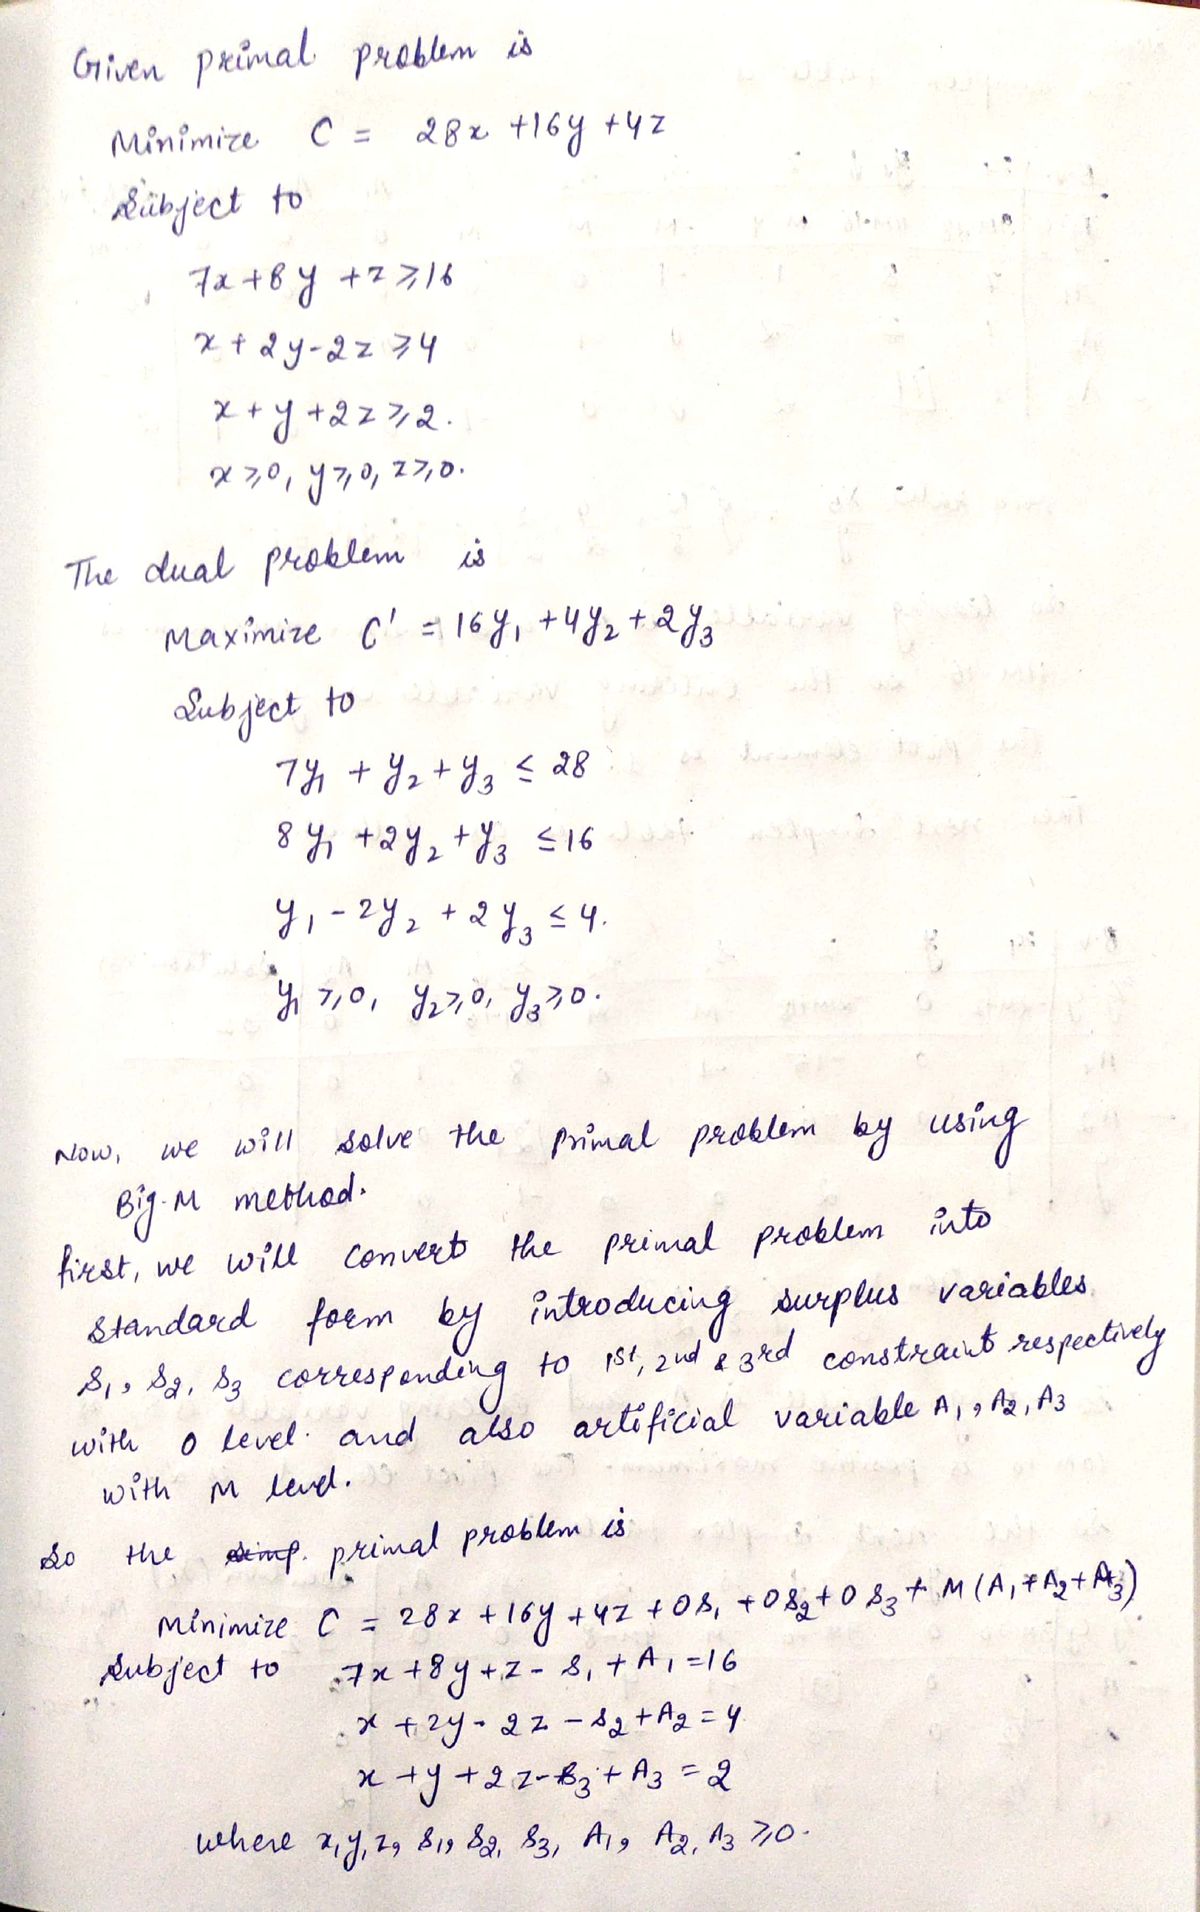 Given primal problem is
Minimize C = 28x + 16y + 4z
Subject to
7x + 8y + z ≥ 16
x + 2y - 2z ≥ 4
x + y + 2z ≥ 2.
x ≥ 0, y ≥ 0, z ≥ 0.
The dual problem is
Maximize C' = 16y₁ + 4y₂ + 2y₃
Subject to
7y₁ + y₂ + y₃ ≤ 28
8y₁ + 2y₂ + y₃ ≤ 16
y₁ - 2y₂ + 2y₃ ≤ 4.
y₁ ≥ 0, y₂ ≥ 0, y₃ ≥ 0.
Now, we will solve the primal problem by using
Big-M method.
first, we will convert the primal problem into
standard form by introducing surplus variables
s₁, s₂, s₃ corresponding to 1st, 2nd & 3rd constraint respectively
with 0 level. and also artificial variable A₁, A₂, A₃
with M level.
So the primal problem is
Minimize C = 28x + 16y + 4z + 0s₁ + 0s₂ + 0s₃ + M(A₁ + A₂ + A₃)
Subject to 7x + 8y + z - s₁ + A₁ = 16
x + 2y - 2z - s₂ + A₂ = 4
x + y + 2z - s₃ + A₃ = 2
where x, y, z, s₁, s₂, s₃, A₁, A₂, A₃ ≥ 0.